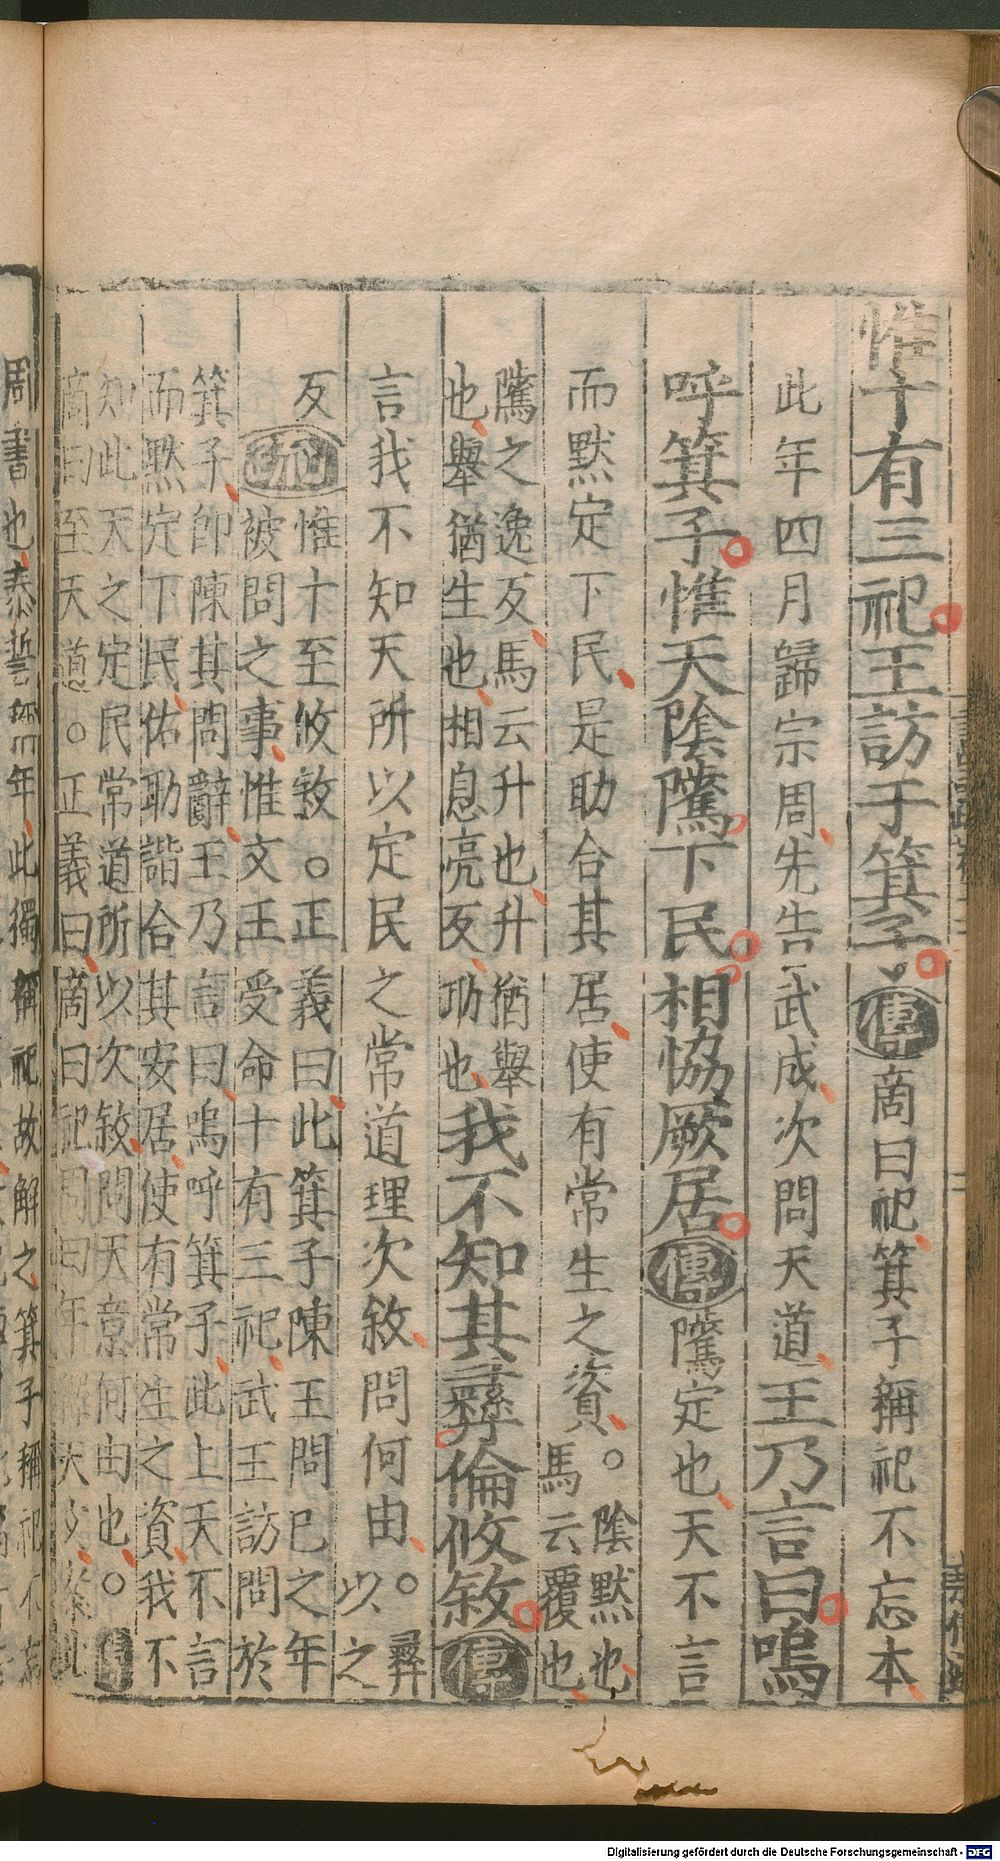 惟十有三祀王訪于箕子傳商曰祀箕子稱祀不忘本
此年四月歸宗周先告武成次問天道王乃言曰嗚
呼箕子惟天陰隲下民相協厥居傳隲定也天不言
而默定下民是助合其居使有常生之資○陰默也
馬云覆也
隲之逸反馬云升也升猶舉
也舉猶生也相息亮反助也我不知其彞倫攸敘傳
言我不知天所以定民之常道理次敘問何由○彞
以之
反惟十至攸敘○正義曰此箕子陳王問已之年
疏被問之事惟文王受命十有三祀武王訪問於
箕子即陳其問辭王乃言曰嗚呼箕子此上天不言
而默定下民佑助諧合其安居使有常生之資我不
知此天之定民常道所以次敘問天意何由也○傳
商曰至天道○正義曰商曰祀周曰年釋天文案此
周書也泰誓稱年此獨稱祀故解之箕子稱祀不忘